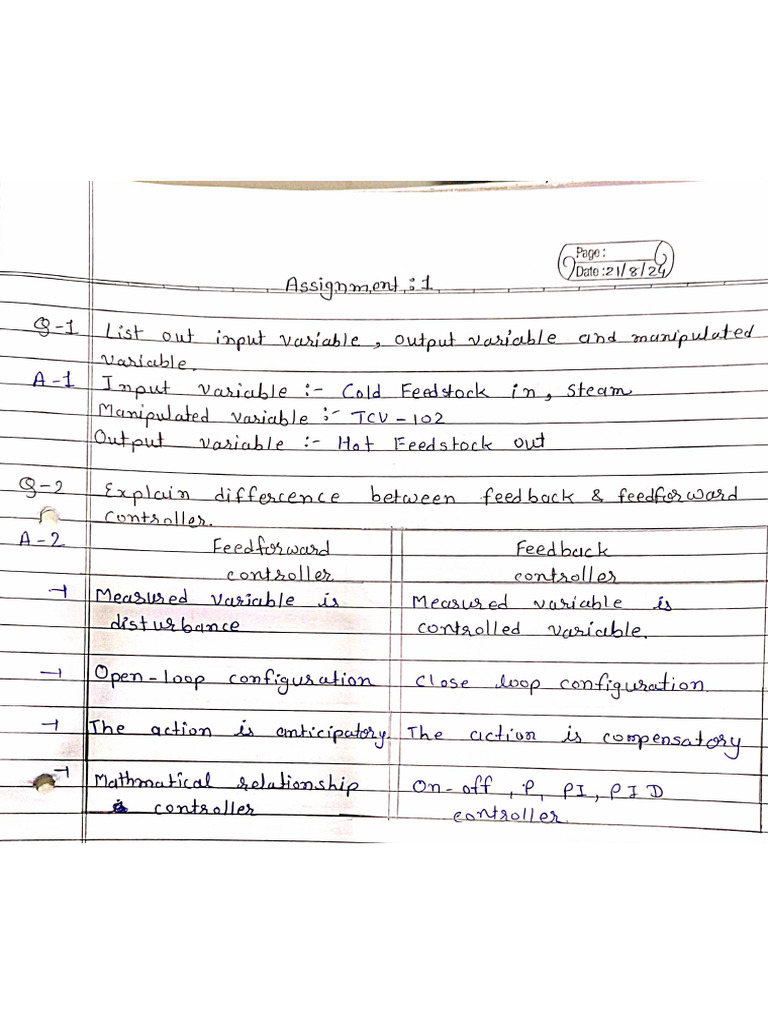 Page:
Date: 21/8/24
Assignment: 1
Q-1 List out input variable, output variable and manipulated
variable.
A-1 Input variable :- Cold Feedstock in, Steam
Manipulated variable :- TCV-102
Output variable :- Hot Feedstock out
Q-2 Explain differcence between feedback & feedforward
controller.
A-2 Feedforward Feedback
controller controller
→ Measured variable is Measured variable is
disturbance controlled variable.
→ Open-loop configuration Close loop configuration
→ The action is anticipatory. The action is compensatory
→ Mathmatical relationship On-off, P, PI, PID
controller controller.